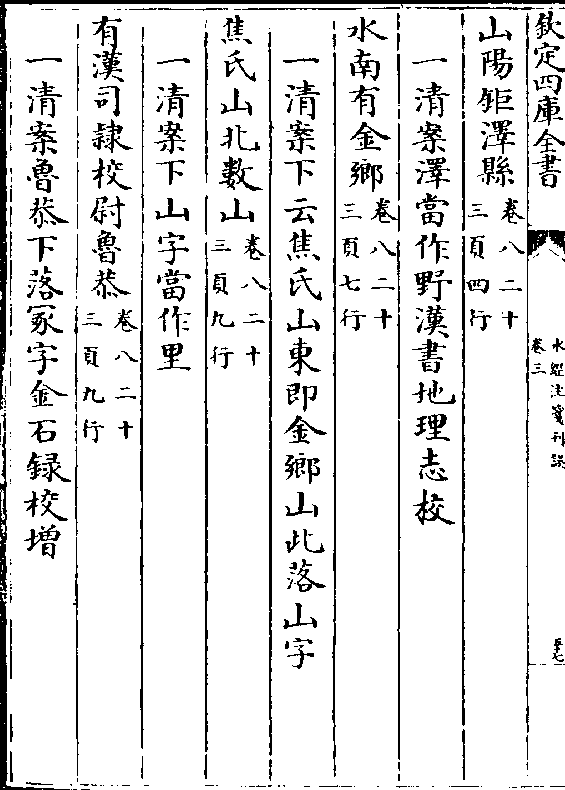 欽定四庫全書
水經注箋刊誤
卷三
五十七
山陽鉅澤縣卷八二十三頁四行
一清案澤當作野漢書地理志校
水南有金鄉卷八二十三頁七行
一清案下云焦氏山東即金鄉山此落山字
焦氏山北數山卷八二十三頁九行
一清案下山字當作里
有漢司隷校尉魯恭卷八二十三頁九行
一清案魯恭下落冢字金石録校增